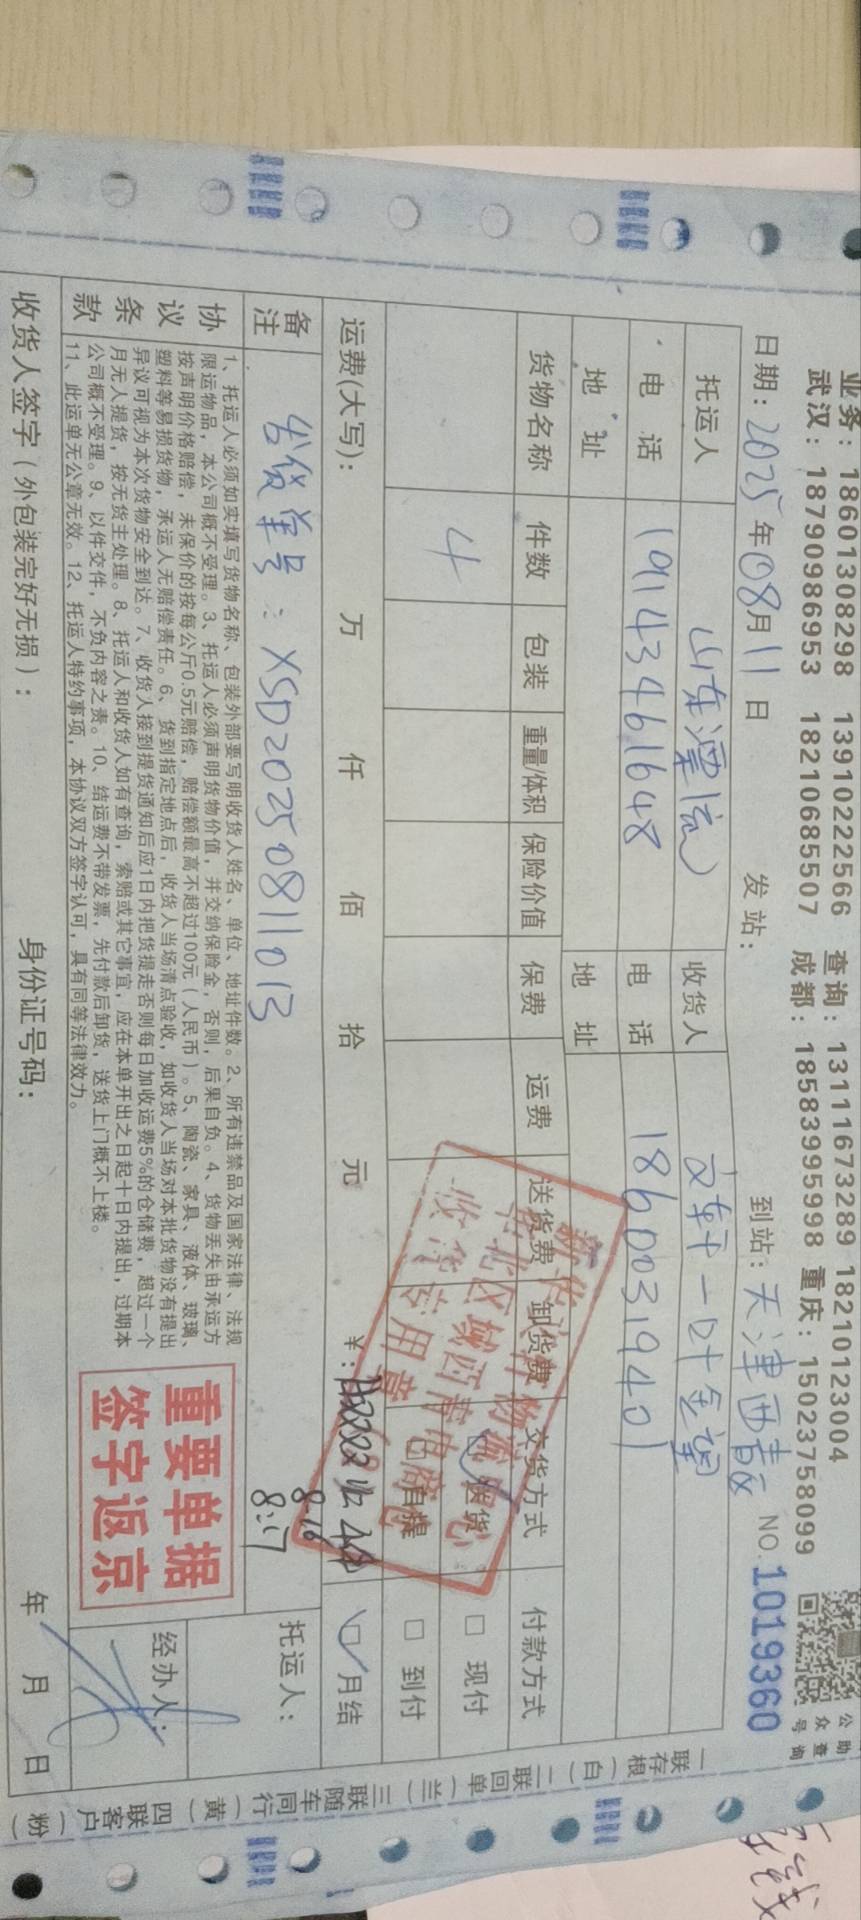 业务：18601308298 13910222566 查询：13111673289 18210123004
武汉：18790986953 18210685507 成都：18583995998 重庆：15023758099
日期：2025年08月11日 发站： 到站：天津西青 NO.1019360
托运人 山东漂流 收货人 文轩一叶金望
电话 19143461648 电话 18600319401
地址 地址
货物名称 件数 包装 重量/体积 保险价值 保费 运费 送货费 卸货费 交货方式 付款方式
4 送货 □ 现付
自提 □ 到付
运费(大写)： 万 仟 佰 拾 元 ¥： □ 月结
备注 发货单号：XSD20250811013
8:17
托运人：
协议条款
1、托运人必须如实填写货物名称、包装外部要写明收货人姓名、单位、地址件数。2、所有违禁品及国家法律、法规
限运物品，本公司概不受理。3、托运人必须声明货物价值，并交纳保险金，否则，后果自负。4、货物丢失由承运方
按声明价格赔偿，未保价的按每公斤0.5元赔偿，赔偿额最高不超过100元（人民币）。5、陶瓷、家具、液体、玻璃、
塑料等易损货物，承运人无赔偿责任。6、货到指定地点后，收货人当场清点验收，如收货人当场对本批货物没有提出
异议可视为本次货物安全到达。7、收货人接到提货通知后应1日内把货提走否则每日加收运费5%的仓储费，超过一个
月无人提货，按无货主处理。8、托运人和收货人如有查询，索赔或其它事宜，应在本单开出之日起十日内提出，过期本
公司概不受理。9、以件交件，不负内容之责。10、结运费不带发票，先付款后卸货，送货上门概不上楼。
11、此运单无公章无效。12、托运人特约事项，本协议双方签字认可，具有同等法律效力。
重要单据
签字返京
经办人：
收货人签字（外包装完好无损）： 身份证号码： 年 月 日
一联存根（白） 二联回单（兰） 三联随车同行（黄） 四联客户（粉）